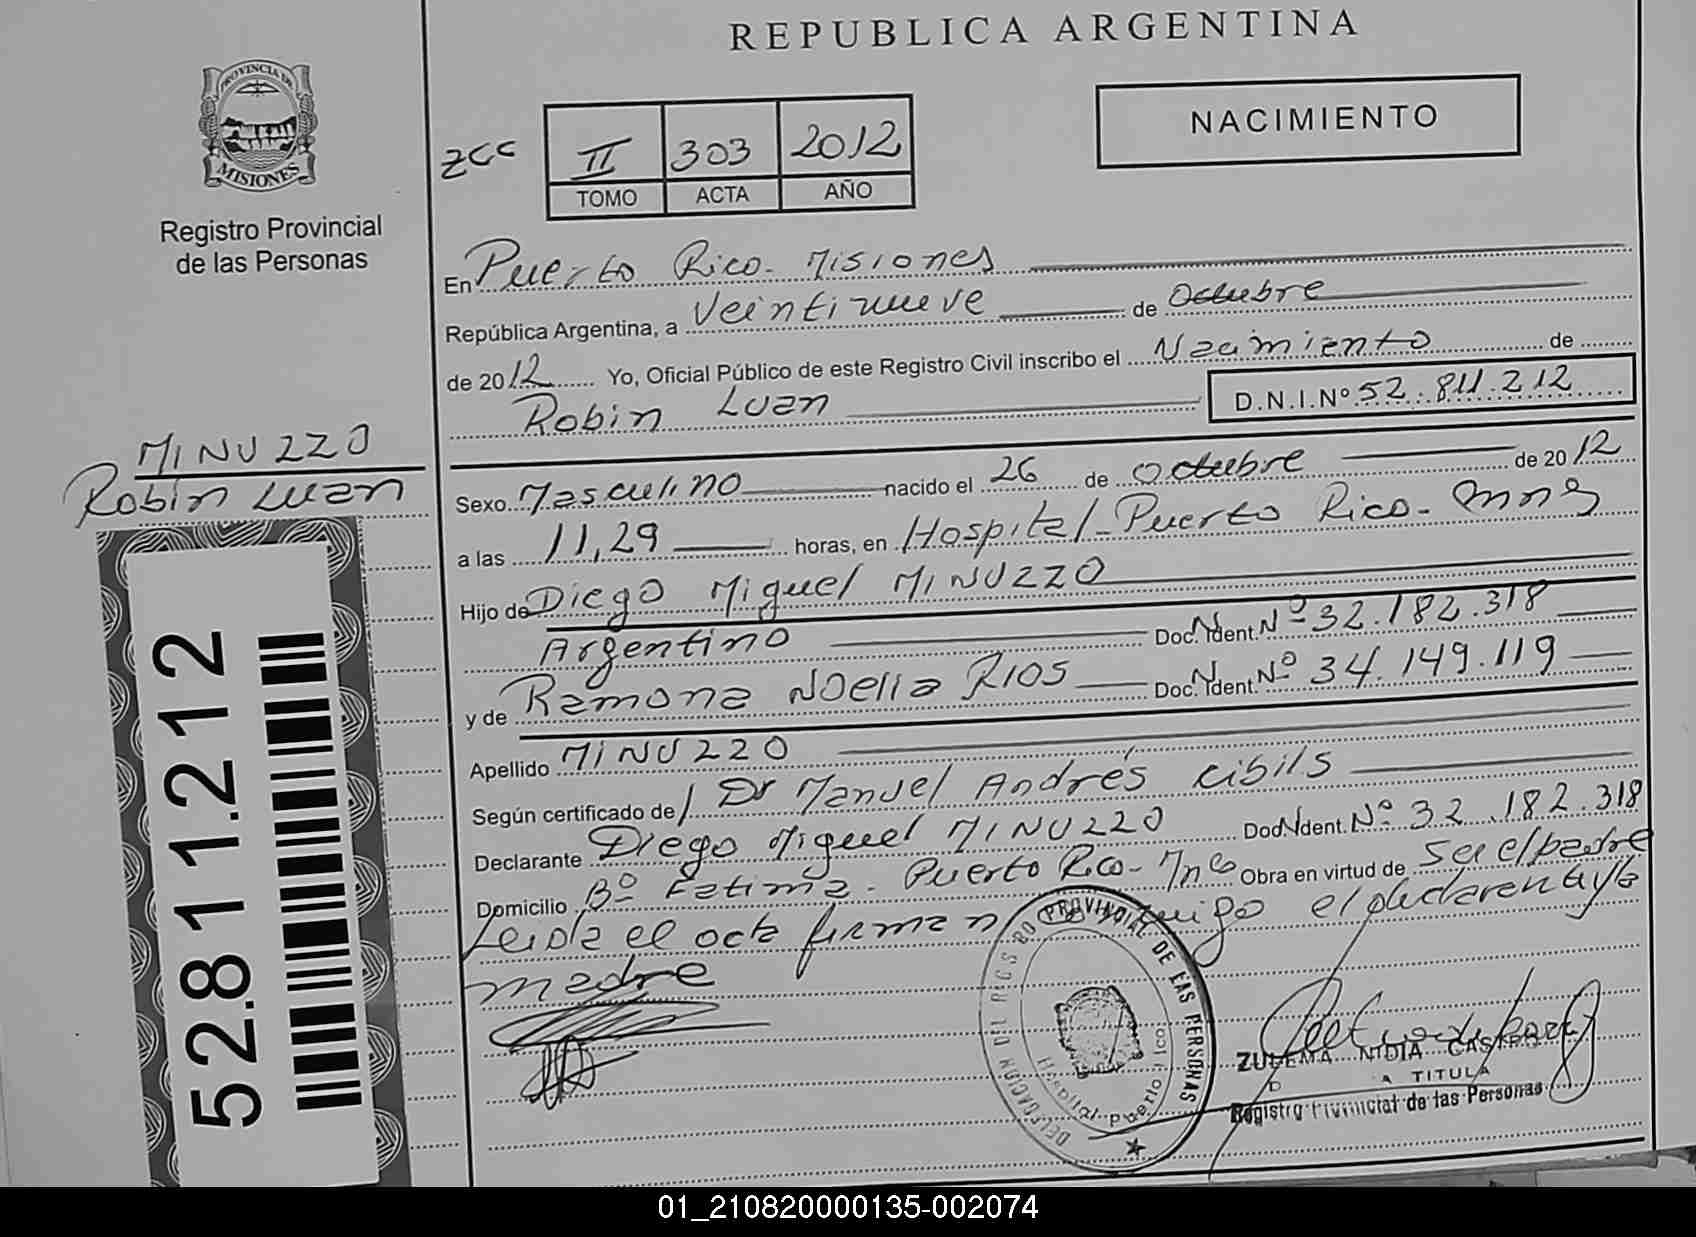 REPUBLICA ARGENTINA
PROVINCIA DE
MISIONES
Registro Provincial
de las Personas
NACIMIENTO
zcc
II 303 2012
TOMO ACTA AÑO
En Puerto Rico. Misiones
República Argentina, a Veintinueve de Octubre
de 2012 Yo, Oficial Público de este Registro Civil inscribo el Nacimiento de
Robin Luan D.N.I.Nº 52.811.212
MINUZZO
Robin Luan
Sexo Masculino nacido el 26 de Octubre de 2012
a las 11,29 horas, en Hospital-Puerto Rico- Mnes
Hijo de Diego Miguel MINUZZO
Argentino Doc. Ident. Nº 32.182.318
y de Ramona Noelia RIOS Doc. Ident. Nº 34.149.119
Apellido MINUZZO
Según certificado de Dr Manuel Andrés Cibils
Declarante Diego Miguel MINUZZO Doc. Ident. Nº 32.182.318
Domicilio Bº Fatima - Puerto Rico- Obra en virtud de Ser el padre
Leida el acta firman el declarante y la
madre
52.811.212
PROVINCIAL DE LAS PERSONAS
Hospital Puerto Rico
ZULEMA NIDIA
TITULA
Registro Provincial de las Personas
01_210820000135-002074